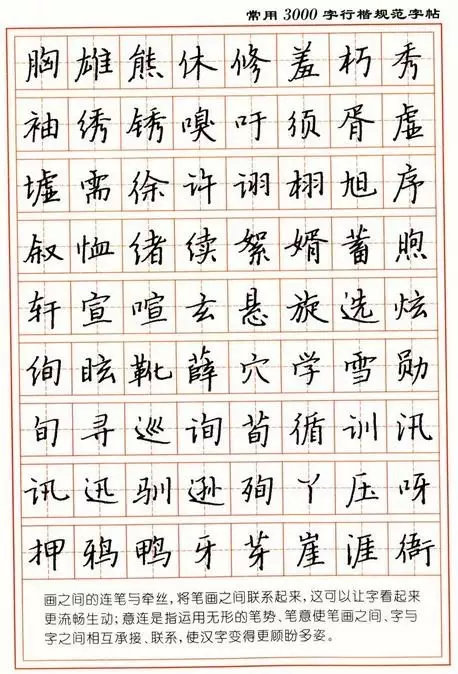 常用3000字行楷规范字帖
胸雄熊休修羞朽秀
袖绣锈嗅吁须胥虚
墟需徐许诩栩旭序
叙恤绪续絮婿蓄煦
轩宣喧玄悬旋选炫
绚眩靴薛穴学雪勋
旬寻巡询荀循训汛
讯迅驯逊殉丫压呀
押鸦鸭牙芽崖涯衙
画之间的连笔与牵丝，将笔画之间联系起来，这可以让字看起来
更流畅生动；意连是指运用无形的笔势、笔意使笔画之间、字与
字之间相互承接、联系，使汉字变得更顾盼多姿。